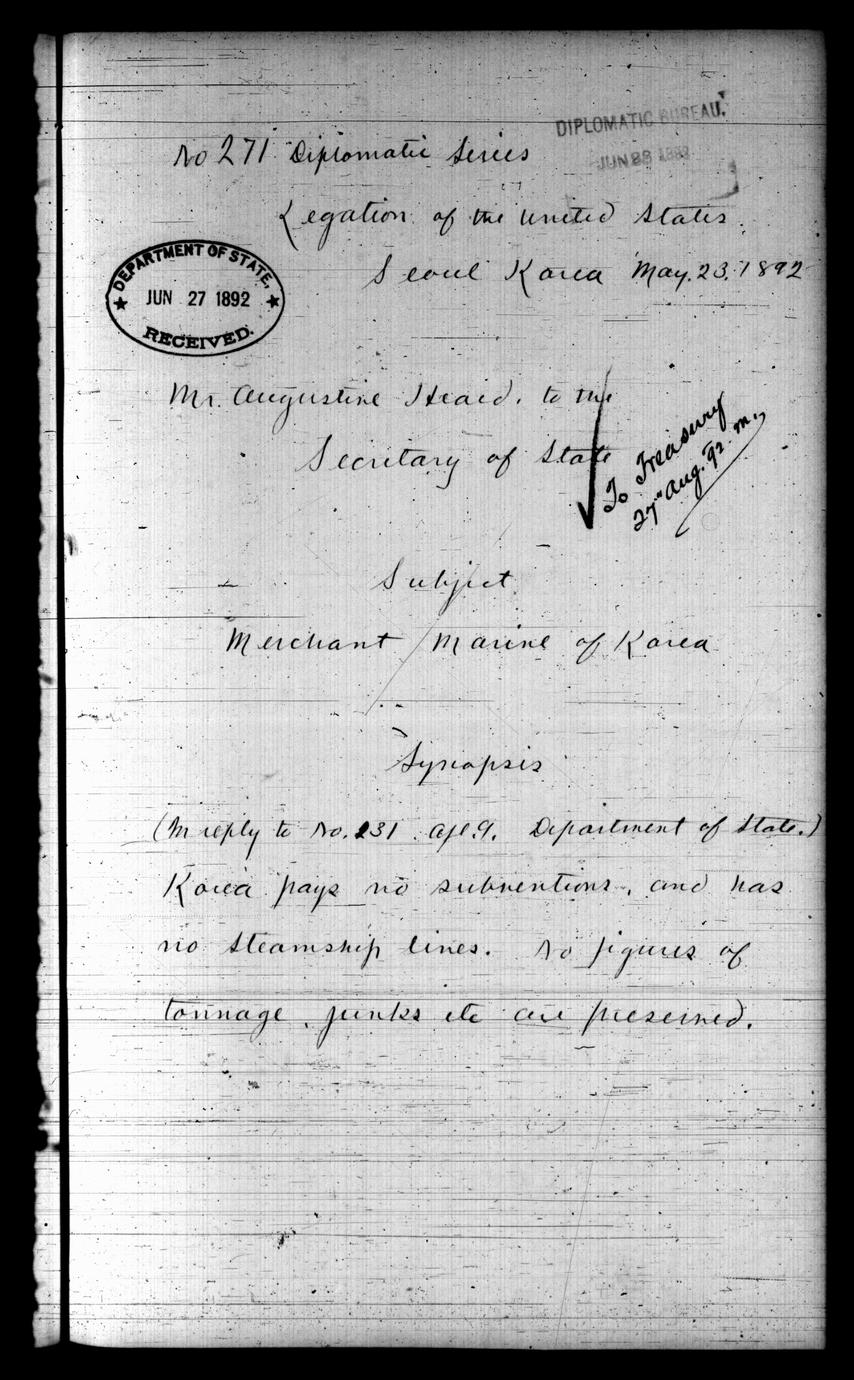 DIPLOMATIC BUREAU.
JUN 28 1892
No 271 Diplomatic Series
Legation of the United States.
Seoul Korea May. 23. 1892
DEPARTMENT OF STATE,
JUN 27 1892
RECEIVED.
Mr. Augustine Heard, to the
Secretary of State
To Treasury
27" Aug. 92. M.
Subject
Merchant Marine of Korea
Synopsis
(In reply to No. 231 Apl. 9. Department of State.)
Korea pays no subventions, and has
no steamship lines. No figures of
tonnage, junks etc are preserved.